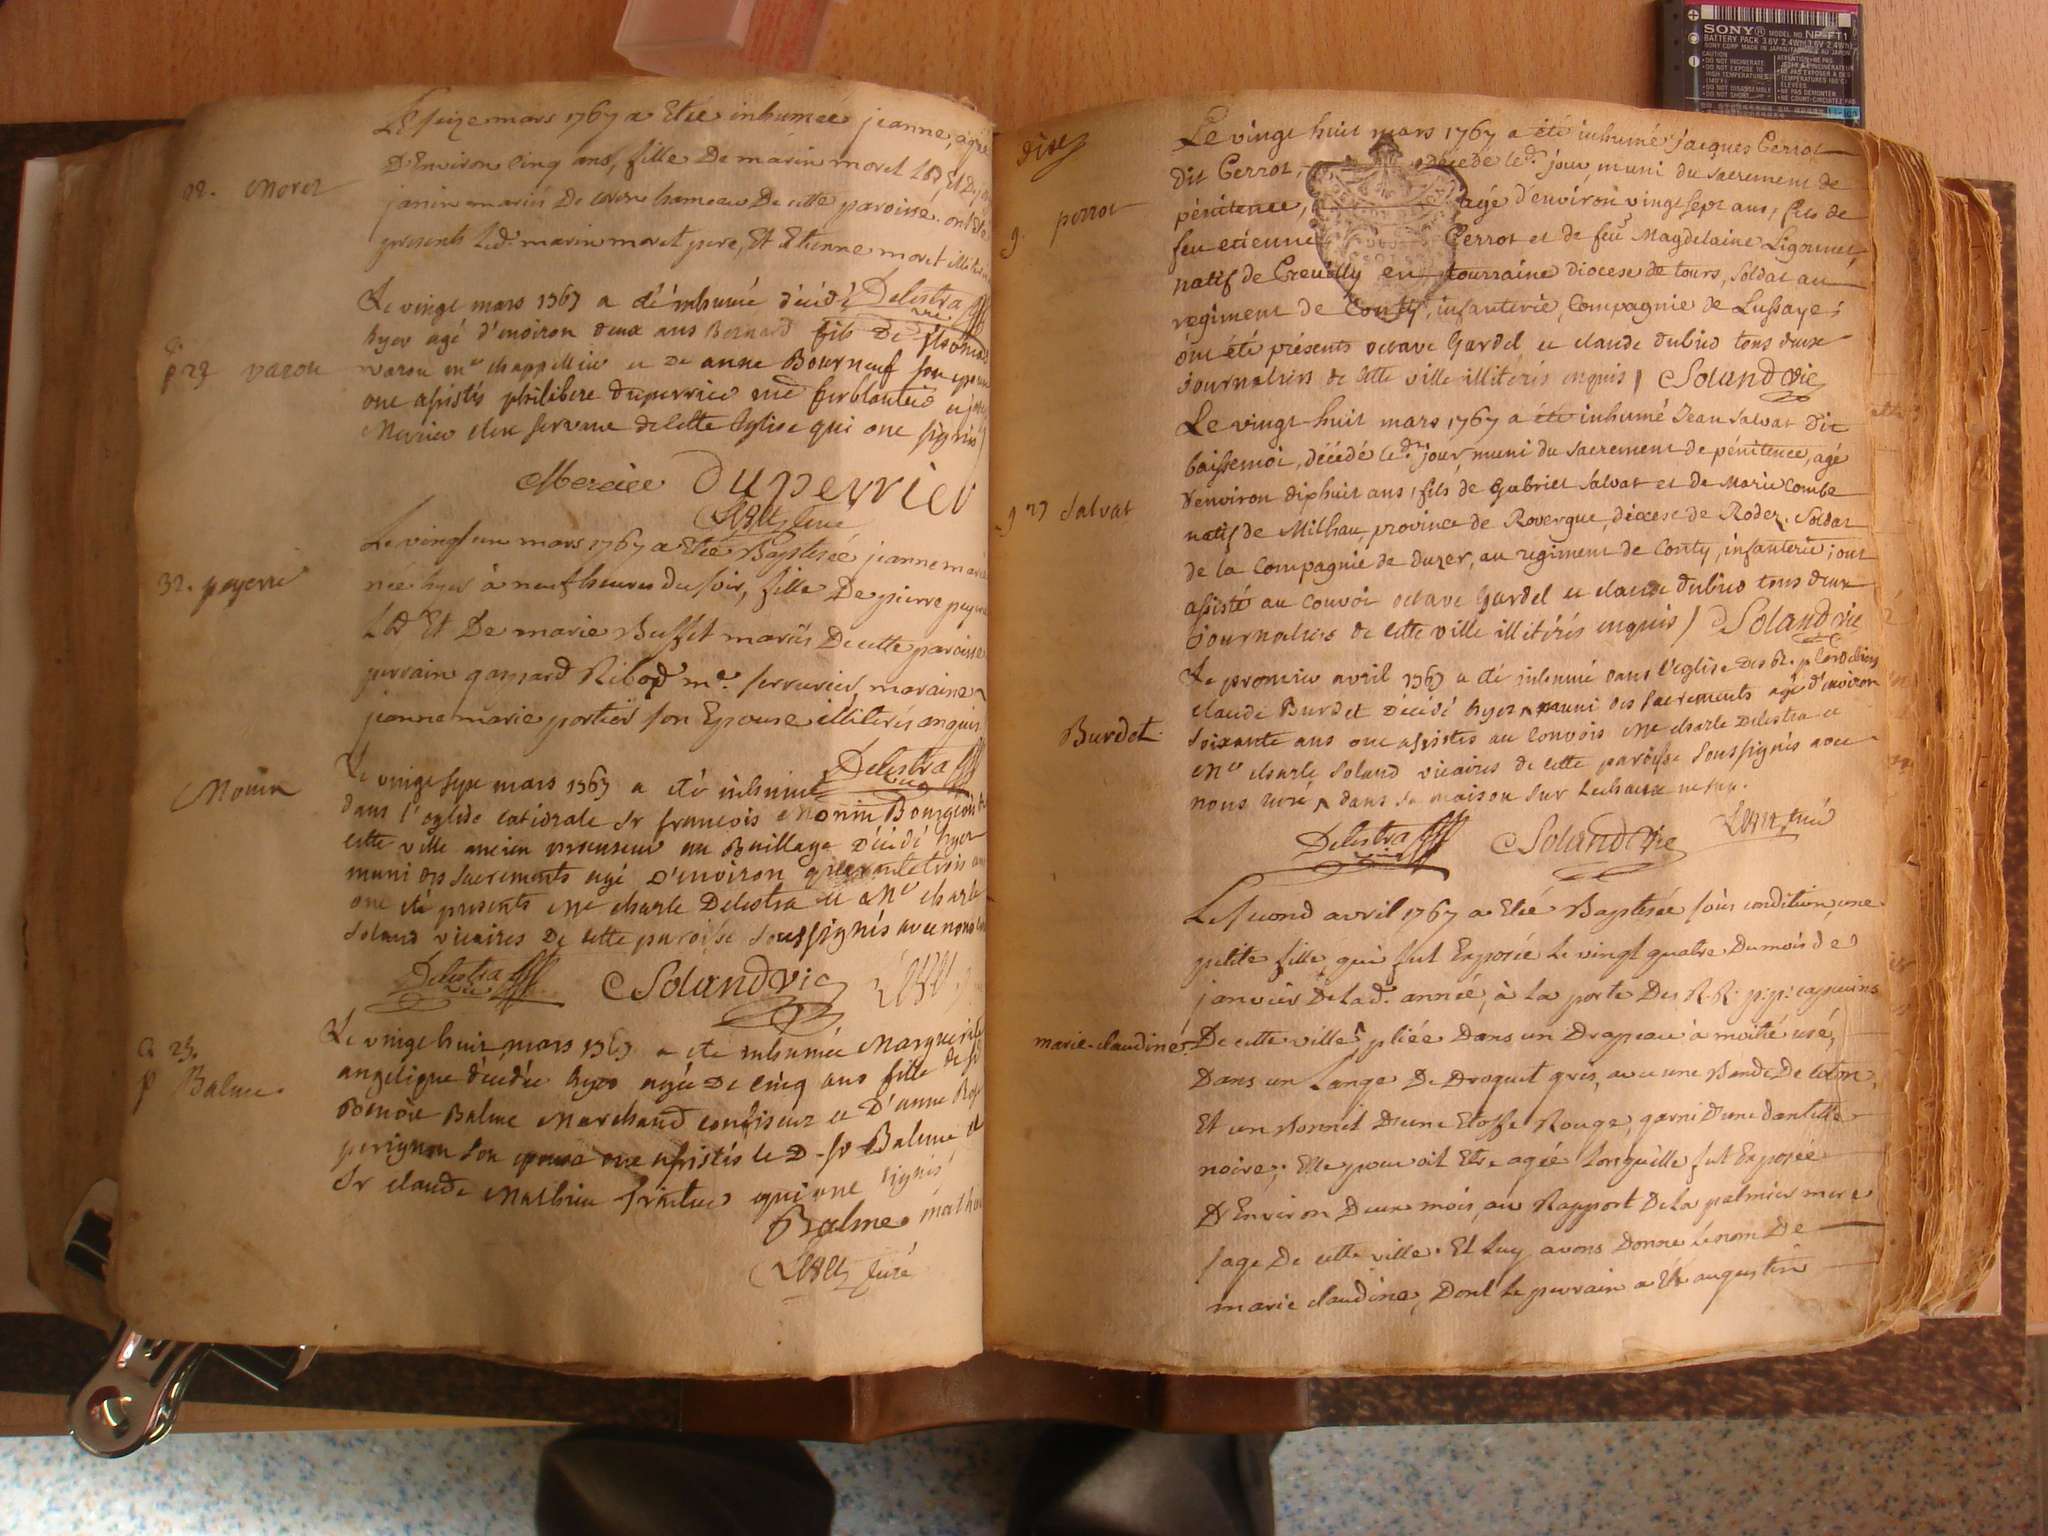 Le seize mars 1767 a Etée inhumée jeanne, agée
D'Environ cinq ans, fille De marin moret Lab. Et De
janin mariés De hameau De cette paroisse. ont Eté
presents Led. marin moret pere, Et Etienne moret
92. Moret
Delestra vic
Le vingt mars 1767 a été inhumé décédé
hyer agé d'environ deux ans Bernard fils De
varou me chappellier et De anne Bourneuf son epouse
ont assistés philibere duperrier md ferblantier et
Mercier clerc servant de cette Eglise qui ont signés
p 29 varou
Mercier Duperrier
curé
Le vingt un mars 1767 a Etée Baptisée jeanne marie
née hyer à neuf heures du soir, fille De pierre
Lab. Et De marie Buffet mariés De cette paroisse
parrain gaspard Ribod me. serrurier, maraine
jeanne marie portier son Epouse illiterés enquis
32. peyerre
Delestra vic
Le vingt sept mars 1767 a été inhumé
dans l'eglise catedrale Sr francois Monin Bourgeois
cette ville ancien procureur au Baillage Décédé hyer
muni des sacrements agé D'environ quarante trois ans
ont été presents Me charle Delestra et Me charle
Soland vicaires De cette paroisse soussignés avec nous
Monin
Delestra vic Soland vic
Le vingt huit mars 1767 a ete inhumée Marguerite
angelique décédée hyer agée De cinq ans fille de
Benoit Balme Marchand confiseur et D'anne
perignon son epouse ont assistés le D. sr Balme et
Sr claude Mathieu qui ont signés
29.
p Balme.
Balme
curé
dixe
Le vingt huit mars 1767 a été inhumé jacques Perrot
dit Perrot, décédé led. jour, muni du sacrement de
pénitence, agé d'environ vingt sept ans, fils de
feu etienne Perrot et de feue Magdelaine Ligonnet,
natif de Creuilly en tourraine diocese de tours, soldat au
regiment de Conty, infanterie, Compagnie de Lussaye;
ont été présents octave Gardel et claude dubied tous deux
journaliers de cette ville illiterés enquis / Soland vic
perrot
Le vingt-huit mars 1767 a été inhumé Jean Salvat dit
baissemoi, décédé led. jour, muni du sacrement de pénitence, agé
d'environ dixhuit ans, fils de Gabriel Salvat et de Marie Combe
natif de Milhau, province de Rovergue, diocese de Rodez. Soldat
de la Compagnie de duzer, au regiment de Conty, infanterie; ont
assisté au convoi octave Gardel et claude dubied tous deux
journaliers de cette ville illitérés enquis / Soland vic
Salvat
Le premier avril 1767 a été inhumé dans l'eglise des R. p Cordeliers
claude Burdet décédé hyer ^ muni des sacrements agé d'environ
soixante ans ont assistés au convois Me charle Delestra et
Me charle Soland vicaires de cette paroisse soussignés avec
nous curé ^ dans sa maison sur
Burdet
Delestra vic Soland vic curé
Le second avril 1767 a Etée Baptisée sous condition, une
petite fille qui fut Exposée Le vingt quatre Du mois de
janvier De lad. année, à La porte Des R.R. p.p. capucins
De cette ville, pliée Dans un Drapeau à moitié usé,
Dans un Lange De Droguet gris, avec une Bande De coton,
Et un Bonnet D'une Etoffe Rouge, garni d'une dantelle
noire; Elle pouvoit Etre agée Lorsquelle fut Exposée
D'Environ Deux mois, au Rapport De La palmier mere
sage De cette ville. Et Luy avons Donné le nom De
marie claudine, Dont Le parrain a Eté augustin
marie-claudine.
SONY® MODEL NO. NP-FT1
BATTERY PACK 3.6V 2.4Wh
SONY CORP. MADE IN JAPAN
CAUTION
• DO NOT INCINERATE
• DO NOT EXPOSE TO
HIGH TEMPERATURES
(140°F)
• DO NOT DISASSEMBLE
• DO NOT SHORT
• NE PAS EXPOSER A DES
TEMPERATURES
ELEVEES
• NE PAS DEMONTER
• NE COURT-CIRCUITEZ PAS